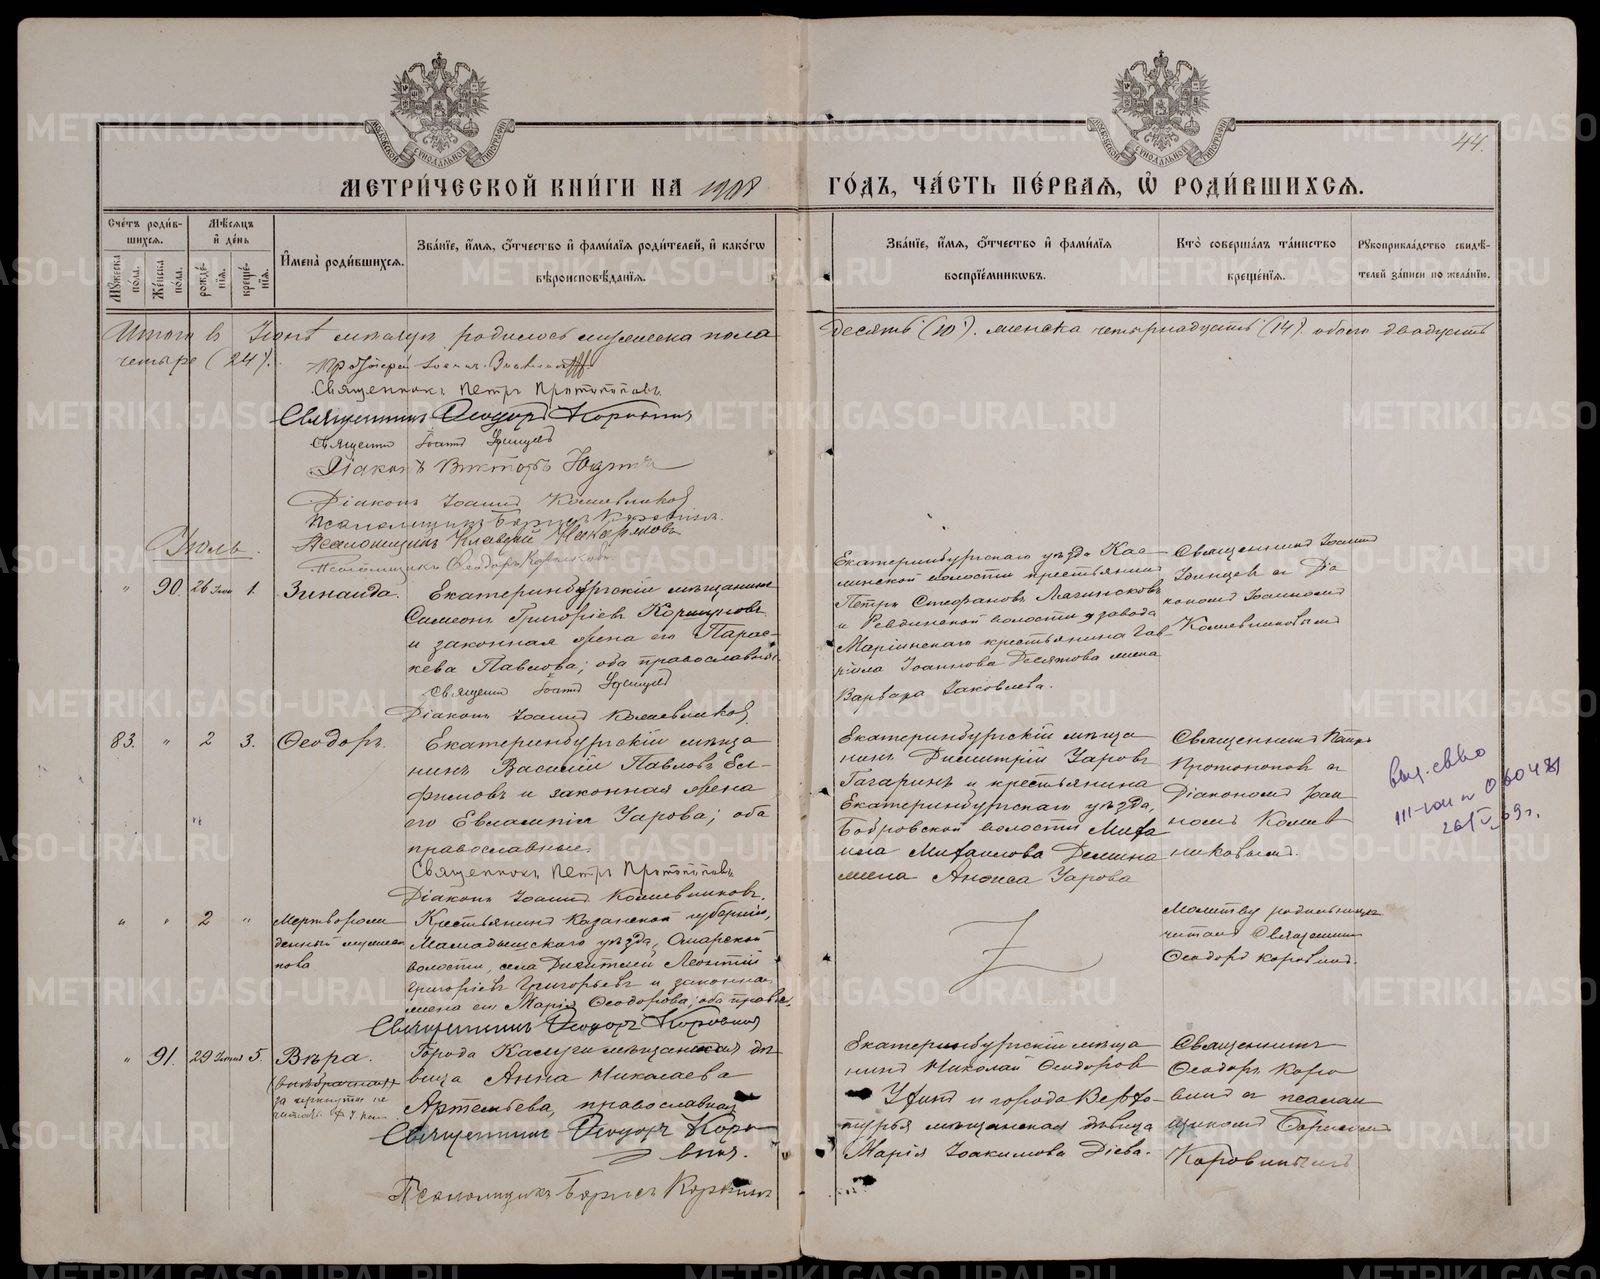 МОСКОВСКОЙ СѴНОДАЛЬНОЙ ТИПОГРАФІИ
МОСКОВСКОЙ СѴНОДАЛЬНОЙ ТИПОГРАФІИ
44.
МЕТРИ́ЧЕСКОЙ КНИ́ГИ НА 1908
ГО́ДЪ, ЧА́СТЬ ПЕ́РВАѦ, Ѡ҆ РОДИ́ВШИХСѦ.
Сче́тъ роди́в-
шихсѧ.
Мѣ́сѧцъ
и҆ де́нь
Мꙋ́жеска по́ла.
Же́нска по́ла.
рожде́-
нїѧ.
креще́-
нїѧ.
И҆мена̀ роди́вшихсѧ.
Зва́нїе, и҆́мѧ, ѻ҆́тчество и҆ фами́лїѧ роди́телей, и҆ како́гѡ
вѣроисповѣ́данїѧ.
Зва́нїе, и҆́мѧ, ѻ҆́тчество и҆ фами́лїѧ
воспрїе́мникѡвъ.
Кто̀ соверша́лъ та́инство
креще́нїѧ.
Рꙋкоприкла́дство свидѣ́-
телей за́писи по жела́нїю.
Итого въ Іюнѣ мѣсяцѣ родилось мужеска пола
десять (10), женска четырнадцать (14), обоего двадцать
четыре (24).
Протоіерей Іоаннъ
Священникъ Петръ Протопоповъ
Священникъ Ѳеодоръ Коровинъ
Священникъ Іоаннъ
Діаконъ Викторъ
Діаконъ Іоаннъ Кожевниковъ
Псаломщикъ Борисъ Коровинъ
Псаломщикъ Клавдій
Псаломщикъ Ѳеодоръ
Іюль.
" 90. 26 Іюн 1. Зинаида.
Екатеринбургскій мѣщанинъ
Симеонъ Григоріевъ Коршуновъ
и законная жена его Парас-
кева Павлова; оба православные
Священникъ Іоаннъ
Діаконъ Іоаннъ Кожевниковъ
Екатеринбургскаго уѣзда Кас-
линской волости крестьянинъ
Петръ Стефановъ
и Ревдинской волости завода
Маріинскаго крестьянина Гав-
ріила Іоаннова Десятова жена
Варвара Іаковлева.
Священникъ Іоаннъ
съ Діа-
кономъ Іоанномъ
Кожевниковымъ
83. " 2 3. Ѳеодоръ.
Екатеринбургскій мѣща
нинъ Василій Павловъ Ел-
фимовъ и законная жена
его Евлампія Уарова; оба
православные.
Священникъ Петръ Протопоповъ
Діаконъ Іоаннъ Кожевниковъ.
Екатеринбургскій мѣща
нинъ Димитрій Уаровъ
Гагаринъ и крестьянина
Екатеринбургскаго уѣзда,
Бобровской волости Миха
ила Михаилова Демина
жена Анѳиса Уарова
Священникъ Петръ
Протопоповъ съ
Діакономъ Іоан
номъ Кожев
никовымъ.
выд. св-во
III-ЮИ № 060481
26/V 69 г.
" " 2 " Мертворож
денный мужеска
пола
Крестьянинъ Казанской губерніи,
Мамадышскаго уѣзда, Омарской
волости, села Леонтій
Григоріевъ Григорьевъ и законная
жена его Марія Ѳеодорова; оба правос.
Священникъ Ѳеодоръ Коровинъ
Молитву родильницѣ
читалъ Священникъ
Ѳеодоръ Коровинъ.
" 91. 29 Іюня 5. Вѣра.
(внѣбрачная)
за черкнутое не
читать
Города Калуги мѣщанская дѣ
вица Анна Николаева
Артемьева, православная
Священникъ Ѳеодоръ Коро
винъ.
Псаломщикъ Борисъ Коровинъ
Екатеринбургскій мѣща
нинъ Николай Ѳеодоров
Ухинъ и города Верхо-
турья мѣщанская дѣвица
Марія Іоакимова Діева.
Священникъ
Ѳеодоръ Коро
винъ съ псалом
щикомъ Борисомъ
Коровинымъ
METRIKI.GASO-URAL.RU